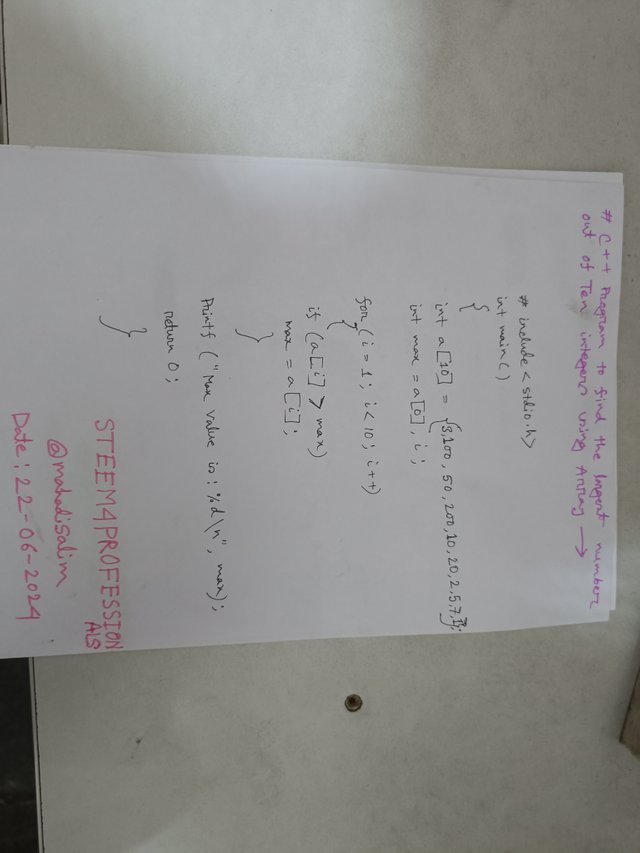 # C++ Program to find the largest number
out of Ten integers using Array →
# include < stdio.h>
int main()
{
int a [10] = {3,100, 50, 200, 10, 20, 2, 5, 7, 1};
int max = a[0], i;
for ( i = 1; i < 10; i++)
{
if (a[i] > max)
max = a[i];
}
Printf ("Max value is: %d \n", max);
return 0;
}
STEEM4PROFESSION
ALS
@mahadisalim
Date: 22-06-2024